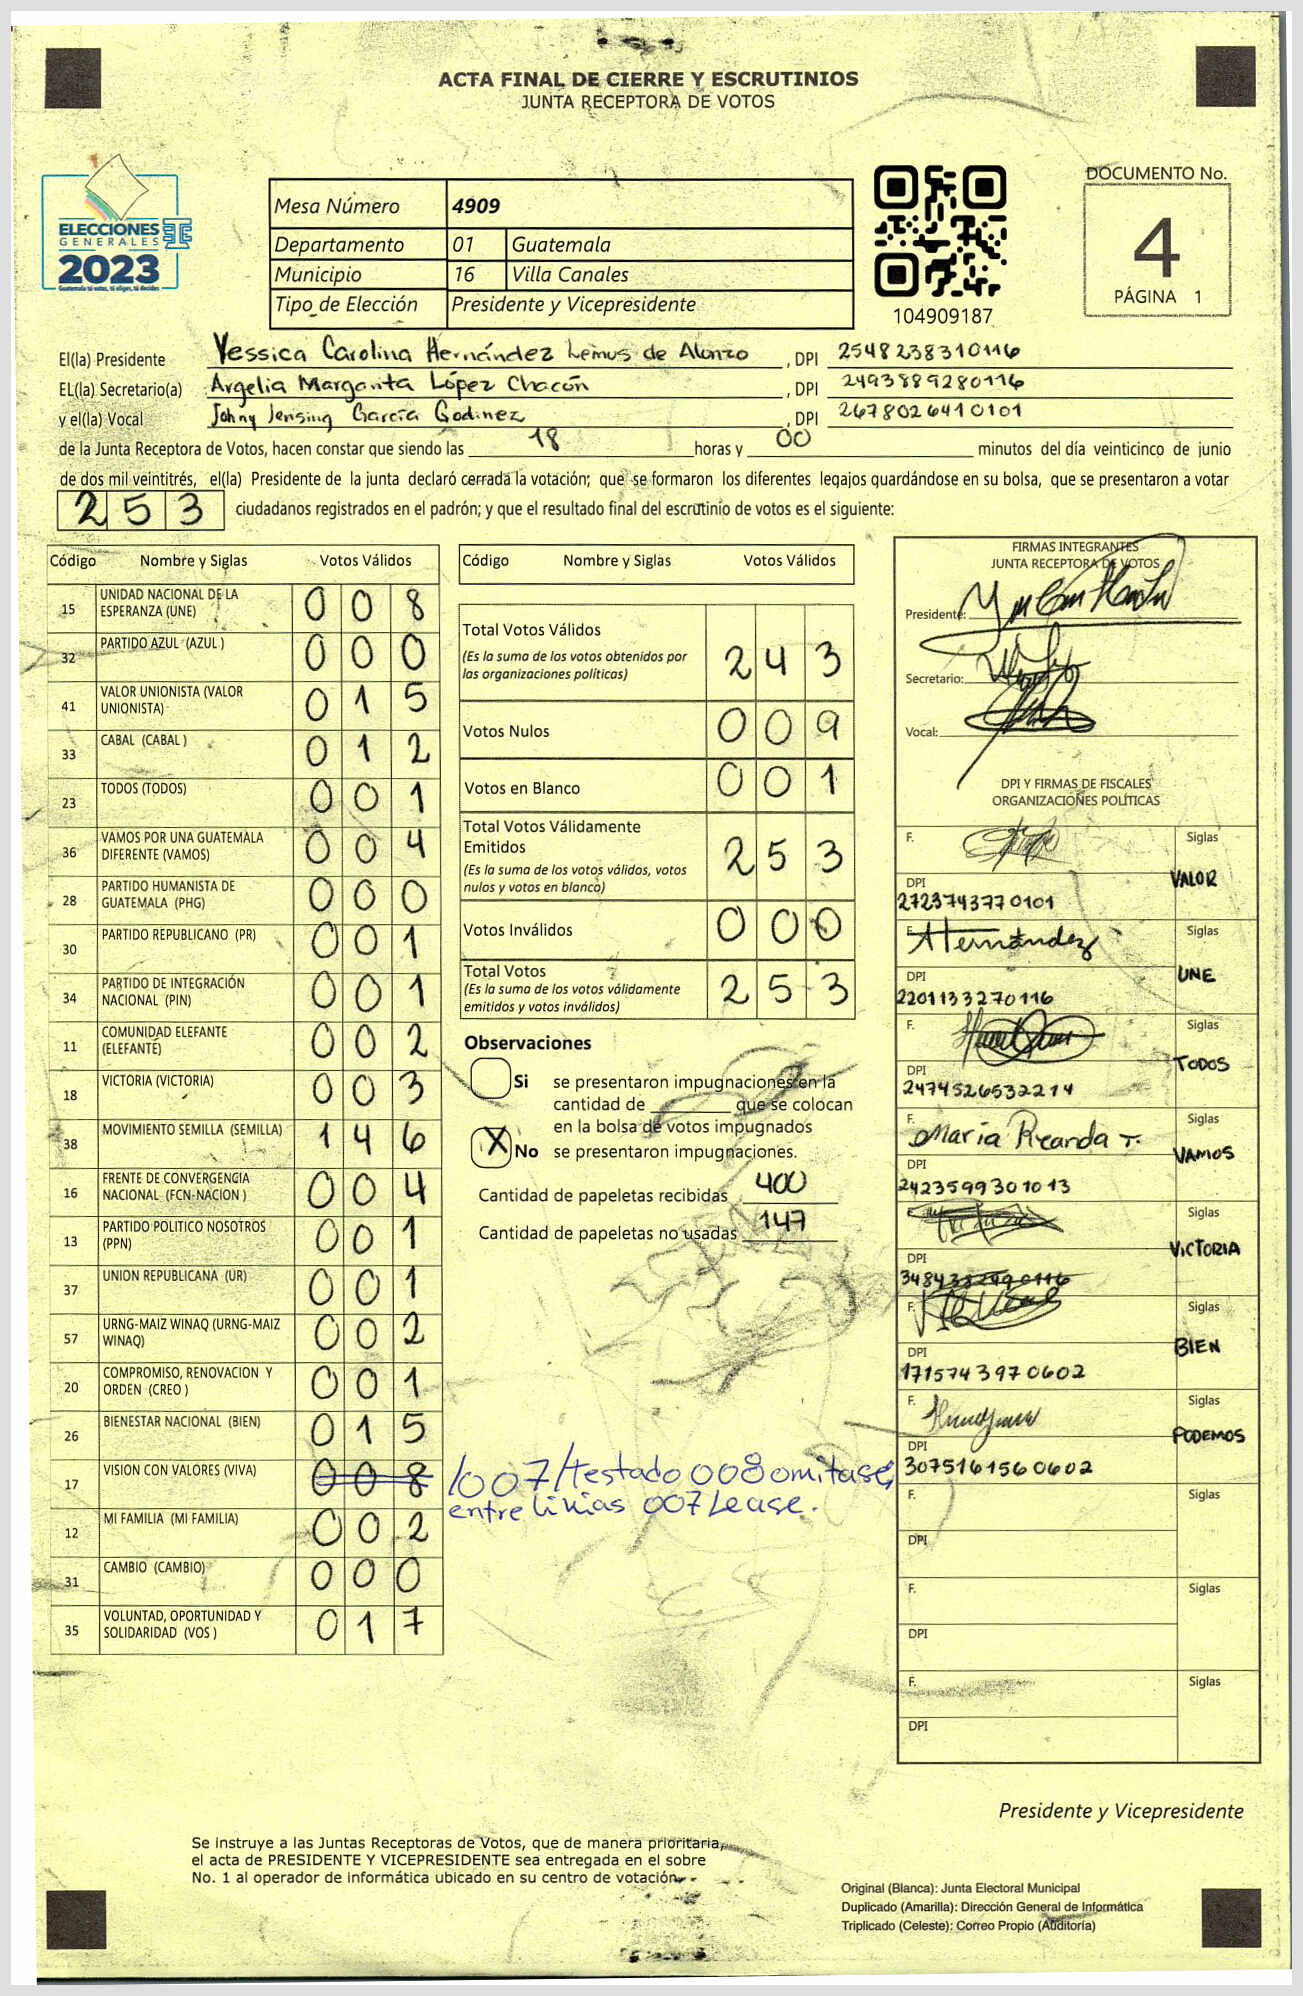 ACTA FINAL DE CIERRE Y ESCRUTINIOS
JUNTA RECEPTORA DE VOTOS
ELECCIONES
GENERALES
2023
Guatemala tú votas, tú eliges, tú decides
Mesa Número 4909
Departamento 01 Guatemala
Municipio 16 Villa Canales
Tipo de Elección Presidente y Vicepresidente
104909187
DOCUMENTO No.
4
PÁGINA 1
El(la) Presidente Yessica Carolina Hernández Lemus de Alonzo , DPI 2548238310116
EL(la) Secretario(a) Argelia Margarita López Chacón , DPI 2493889280116
y el(la) Vocal Johny Jensing García Godinez , DPI 2678026410101
de la Junta Receptora de Votos, hacen constar que siendo las 18 horas y 00 minutos del día veinticinco de junio
de dos mil veintitrés, el(la) Presidente de la junta declaró cerrada la votación; que se formaron los diferentes legajos guardándose en su bolsa, que se presentaron a votar
253 ciudadanos registrados en el padrón; y que el resultado final del escrutinio de votos es el siguiente:
Código Nombre y Siglas Votos Válidos
15 UNIDAD NACIONAL DE LA ESPERANZA (UNE) 008
32 PARTIDO AZUL (AZUL ) 000
41 VALOR UNIONISTA (VALOR UNIONISTA) 015
33 CABAL (CABAL ) 012
23 TODOS (TODOS) 001
36 VAMOS POR UNA GUATEMALA DIFERENTE (VAMOS) 004
28 PARTIDO HUMANISTA DE GUATEMALA (PHG) 000
30 PARTIDO REPUBLICANO (PR) 001
34 PARTIDO DE INTEGRACIÓN NACIONAL (PIN) 001
11 COMUNIDAD ELEFANTE (ELEFANTE) 002
18 VICTORIA (VICTORIA) 003
38 MOVIMIENTO SEMILLA (SEMILLA) 146
16 FRENTE DE CONVERGENCIA NACIONAL (FCN-NACION ) 004
13 PARTIDO POLITICO NOSOTROS (PPN) 001
37 UNION REPUBLICANA (UR) 001
57 URNG-MAIZ WINAQ (URNG-MAIZ WINAQ) 002
20 COMPROMISO, RENOVACION Y ORDEN (CREO ) 001
26 BIENESTAR NACIONAL (BIEN) 015
17 VISION CON VALORES (VIVA) 008 /007/testado 008 omitase,
entre linias 007 Lease.
12 MI FAMILIA (MI FAMILIA) 002
31 CAMBIO (CAMBIO) 000
35 VOLUNTAD, OPORTUNIDAD Y SOLIDARIDAD (VOS ) 017
Código Nombre y Siglas Votos Válidos
Total Votos Válidos 243
(Es la suma de los votos obtenidos por
las organizaciones políticas)
Votos Nulos 009
Votos en Blanco 001
Total Votos Válidamente
Emitidos 253
(Es la suma de los votos válidos, votos
nulos y votos en blanco)
Votos Inválidos 000
Total Votos 253
(Es la suma de los votos válidamente
emitidos y votos inválidos)
Observaciones
Si se presentaron impugnaciones en la
cantidad de ________ que se colocan
en la bolsa de votos impugnados
X No se presentaron impugnaciones.
Cantidad de papeletas recibidas 400
Cantidad de papeletas no usadas 147
FIRMAS INTEGRANTES
JUNTA RECEPTORA DE VOTOS
Presidente:
Secretario:
Vocal:
DPI Y FIRMAS DE FISCALES
ORGANIZACIONES POLÍTICAS
F. Siglas
VALOR
DPI
2723743770101
F. Hernández Siglas
UNE
DPI
2201133270116
F. Siglas
TODOS
DPI
2474526532214
F. María Ricarda T. Siglas
VAMOS
DPI
2423599301013
F. Siglas
VICTORIA
DPI
3484332490116
F. Siglas
BIEN
DPI
1715743970602
F. Siglas
PODEMOS
DPI
3075161560602
F. Siglas
DPI
F. Siglas
DPI
F. Siglas
DPI
Presidente y Vicepresidente
Se instruye a las Juntas Receptoras de Votos, que de manera prioritaria,
el acta de PRESIDENTE Y VICEPRESIDENTE sea entregada en el sobre
No. 1 al operador de informática ubicado en su centro de votación.
Original (Blanca): Junta Electoral Municipal
Duplicado (Amarilla): Dirección General de Informática
Triplicado (Celeste): Correo Propio (Auditoría)